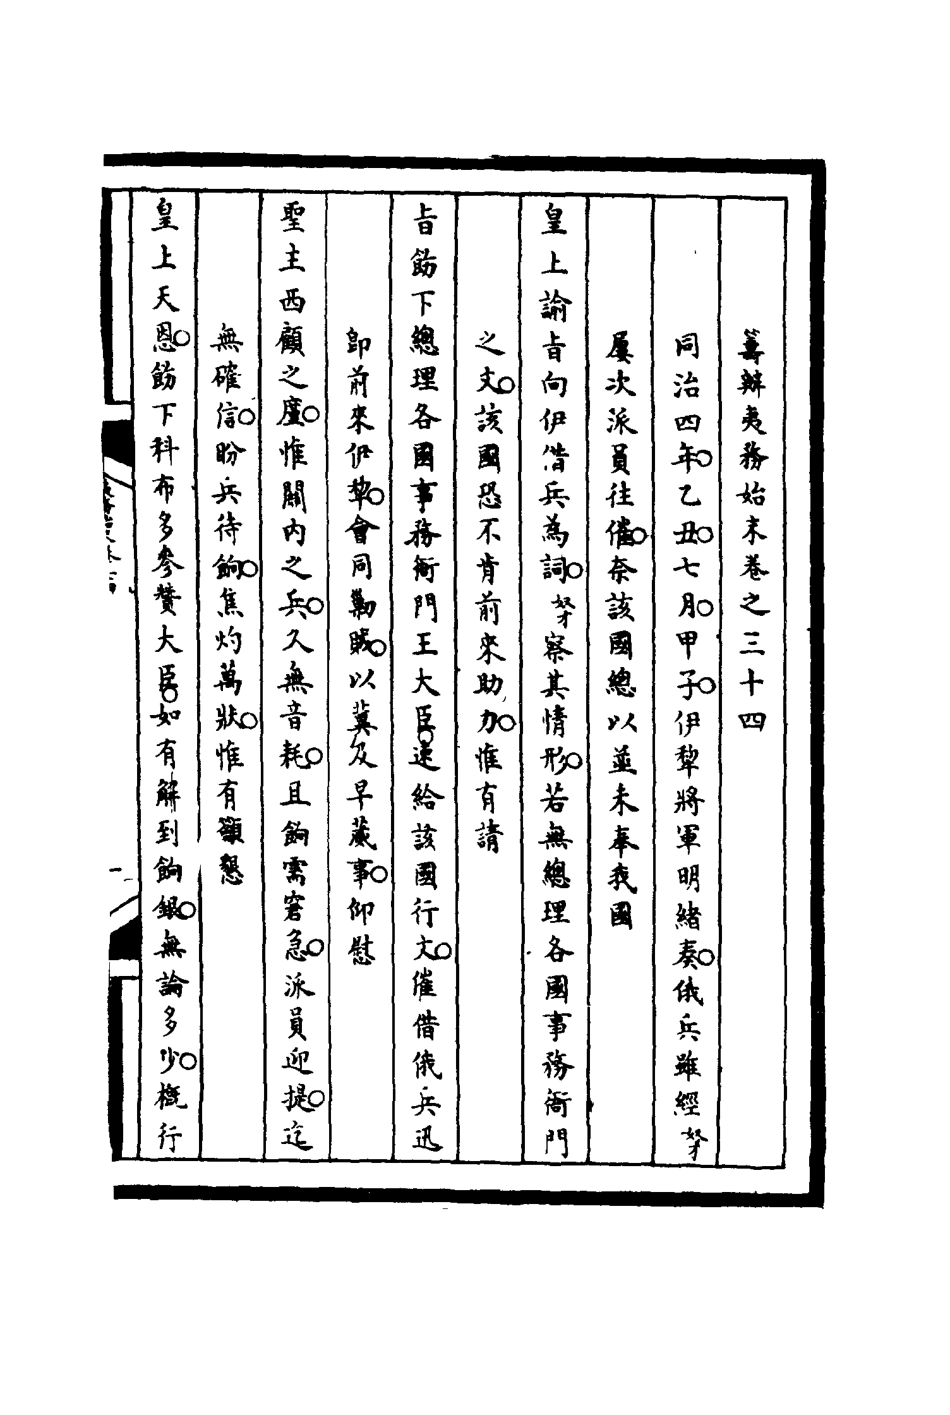 籌辦夷務始末卷之三十四
同治四年乙丑七月甲子伊犂將軍明緒奏俄兵雖經奴才
屢次派員往催奈該國總以並未奉我國
皇上諭旨向伊借兵為詞奴才察其情形若無總理各國事務衙門
之文該國恐不肯前來助力惟有請
旨飭下總理各國事務衙門王大臣速給該國行文催借俄兵迅
卽前來伊犂會同勦賊以冀及早蕆事仰慰
聖主西顧之廑惟關內之兵久無音耗且餉需窘急派員迎提迄
無確信盼兵待餉焦灼萬狀惟有籲懇
皇上天恩飭下科布多參贊大臣如有解到餉銀無論多少概行